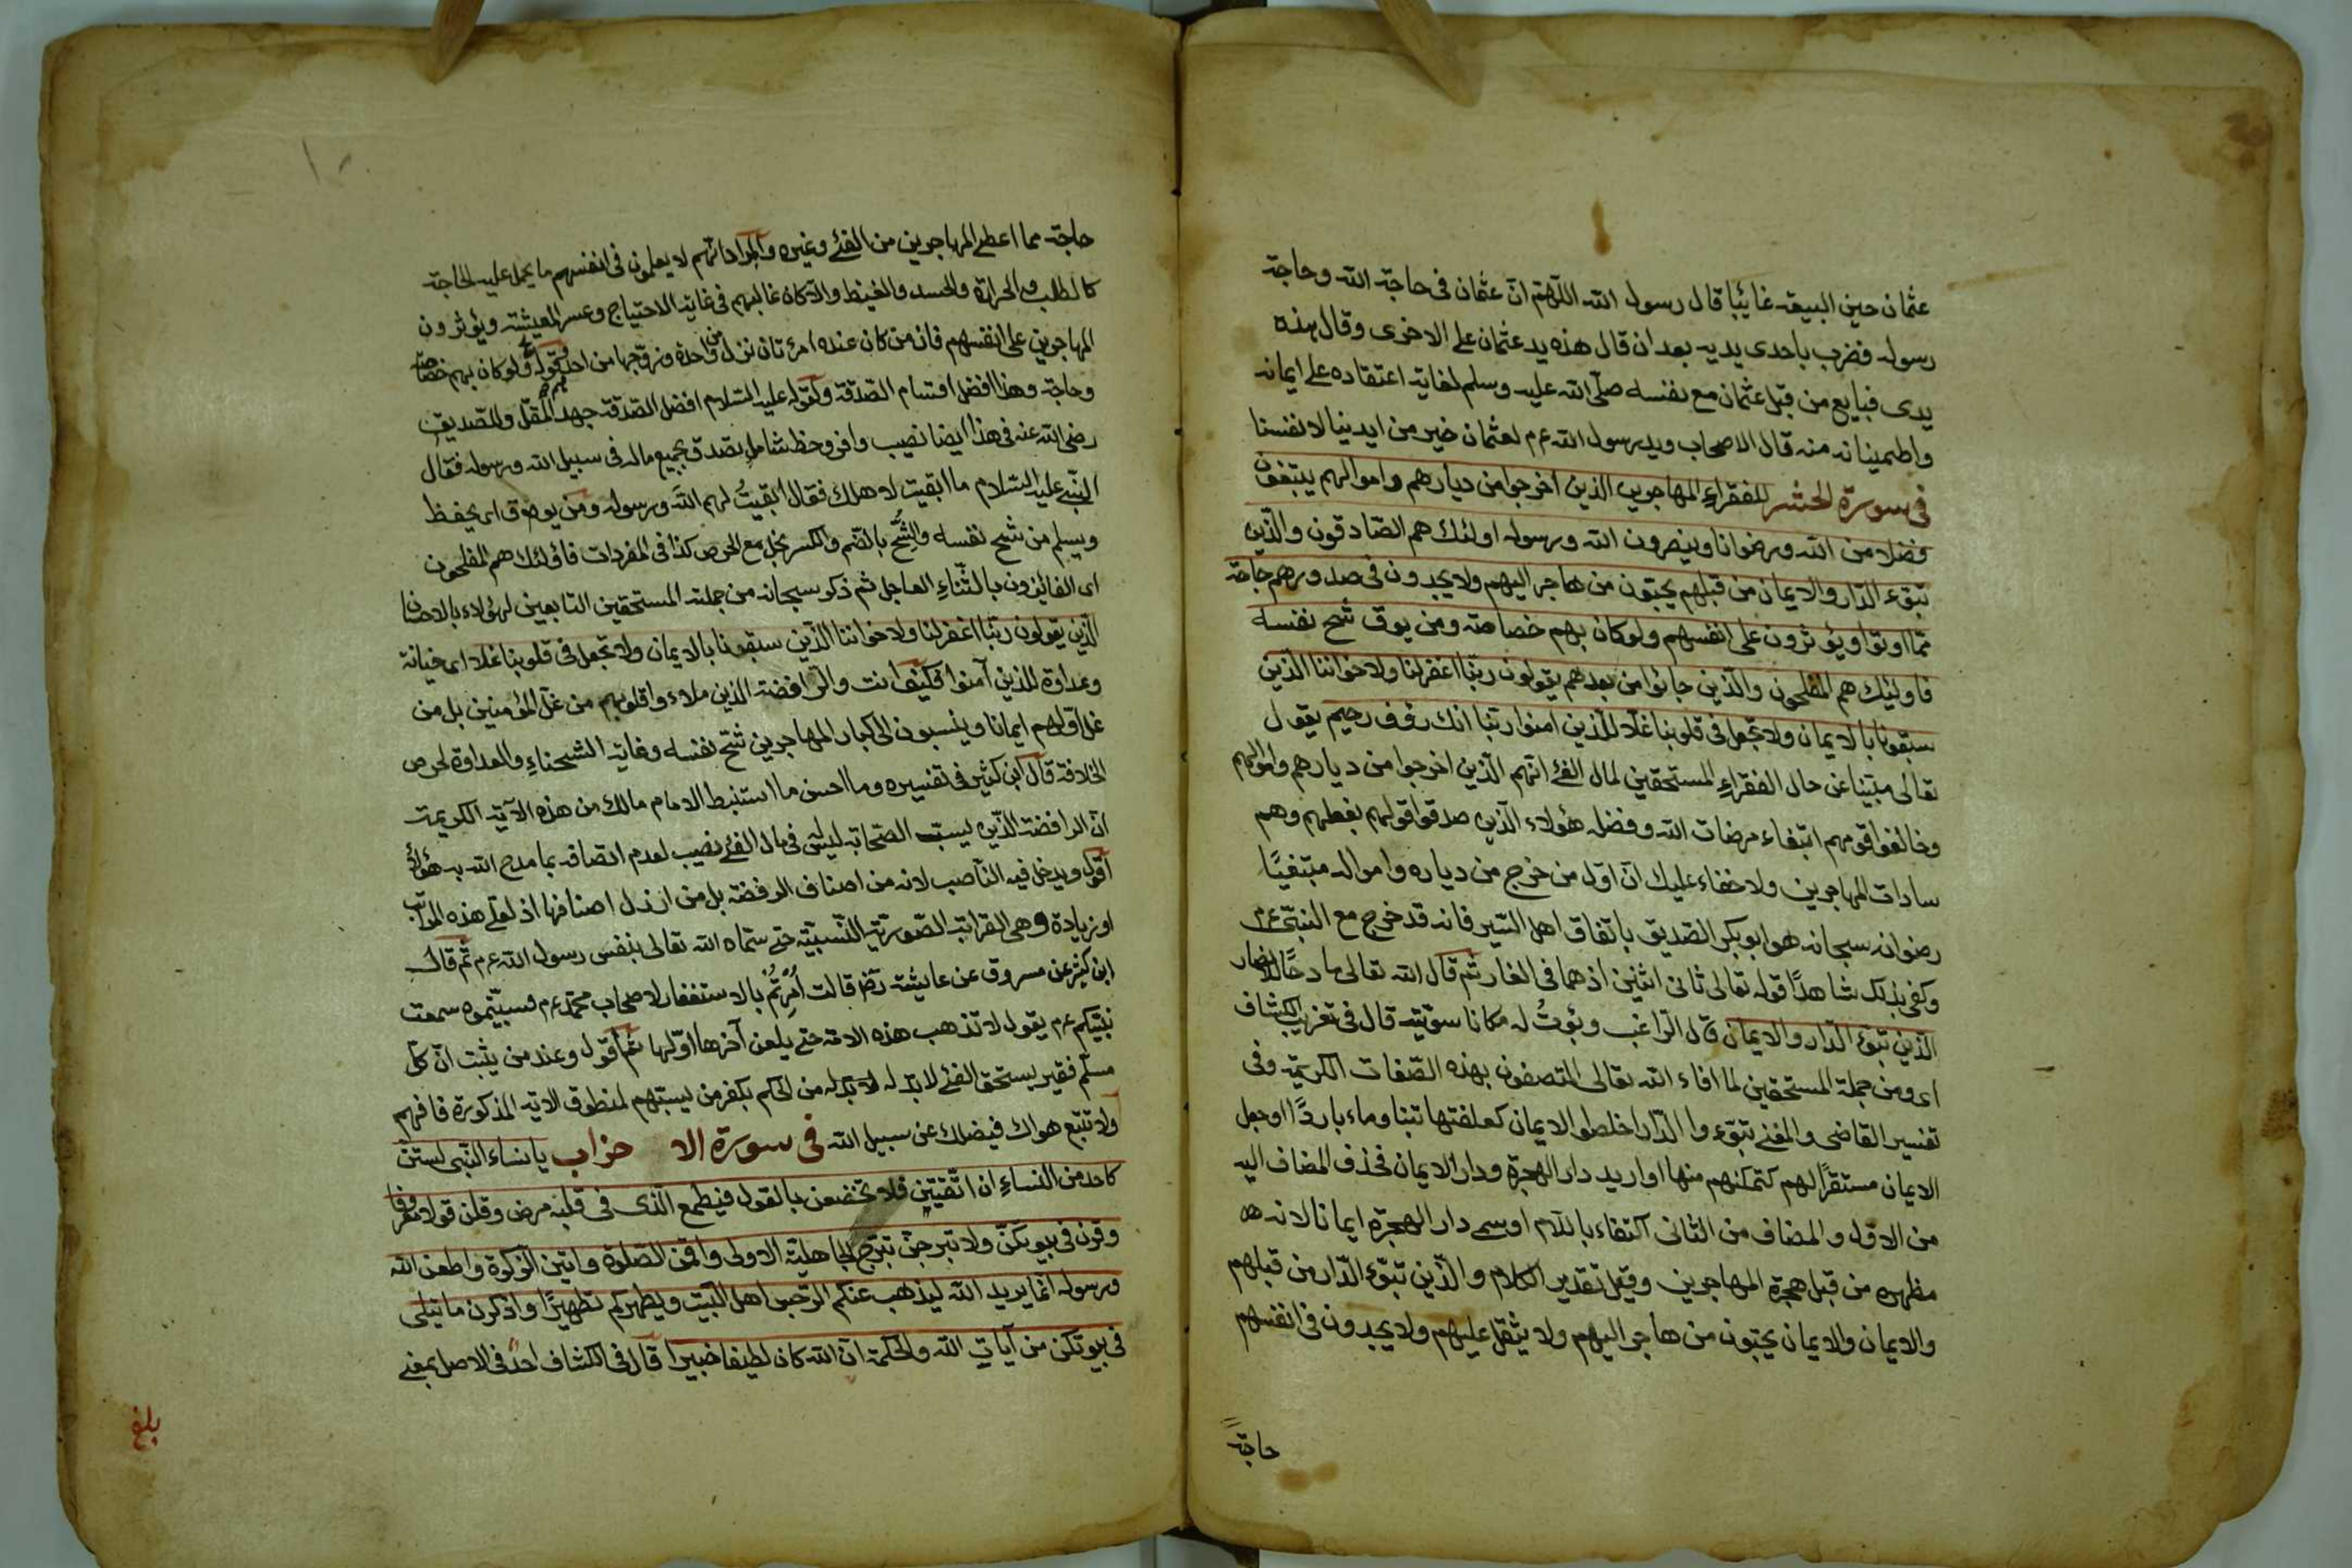 عثمان حين البيعة غائبا قال رسول الله اللهم ان عثمان فى حاجة الله وحاجة
رسوله فضرب باحدى يديه بعد ان قال هذه يد عثمان على الاخرى وقال بهذه
يدى فبايع من قبل عثمان مع نفسه صلّى الله عليه وسلم لغاية اعتقاده على ايمانه
واطمينانه منه قال الاصحاب ويد رسول الله عم لعثمان خير من ايدينا لانفسنا
فى سورة الحشر للفقراء المهاجرين الذين اخرجوا من ديارهم واموالهم يبتغون
فضلا من الله ورضوانا وينصرون الله ورسوله اولئك هم الصّادقون والّذين
تبوّء الدّار والايمان من قبلهم يحبّون من هاجر اليهم ولا يجدون فى صدورهم حاجة
ممّا اوتوا ويؤثرون على انفسهم ولو كان بهم خصاصة ومن يوق شحّ نفسه
فاولئك هم المفلحون والّذين جائوا من بعدهم يقولون ربّنا اغفر لنا ولاخواننا الّذين
سبقونا بالايمان ولا تجعل فى قلوبنا غلّا للّذين امنوا ربّنا انك رؤف رحيم يقول
تعالى مبيّنا عن حال الفقراء المستحقين لمال الفئ انّهم الّذين اخرجوا من ديارهم واموالهم
وخالفوا قومهم ابتغاء مرضات الله وفضله هؤلاء الّذين صدقوا قولهم بفعلهم وهم
سادات المهاجرين ولا خفاء عليك انّ اوّل من خرج من دياره وامواله مبتغيًا
رضوانه سبحانه هو ابو بكر الصّديق باتّفاق اهل السّير فانه قد خرج مع النبىّ عم
وكفى بذلك شاهدًا قوله تعالى ثانى اثنين اذ هما فى الغار ثم قال الله تعالى مادحًا للانصار
الّذين تبوّء الدّار والايمان قال الرّاغب وبوّئتُ له مكانا سوّيته قال فى تقريب الكشاف
اى ومن جملة المستحقين لما افاء الله تعالى المتصفون بهذه الصّفات الكريمة وفى
تفسير القاضى والمغنى تبوّءوا الدّار اخلطوا الايمان كعلفتها تبنا وماء باردًا او جعل
الايمان مستقرًّا لهم كتمكنهم منها او اريد دار الهجرة ودار الايمان فحذف المضاف اليه
من الاوّل والمضاف من الثانى اكتفاء باللّام او سمى دار الهجرة ايمانا لانه
مظهره من قبل هجرة المهاجرين وقيل تقدير الكلام والّذين تبوّء الدّار من قبلهم
والايمان والايمان يحبّون من هاجر اليهم ولا يثقل عليهم ولا يجدون فى انفسهم
حاجة
حاجة مما اعطى المهاجرين من الفئ وغيره والمراد انّهم لا يعلمون فى انفسهم ما يحمل عليه الحاجة
كالطلب والحرارة والحسد والغيظ والّا كان غالبهم فى غاية الاحتياج وعسر المعيشة ويؤثرون
المهاجرين على انفسهم فان من كان عنده امرأتان نزل عن واحدة وزوّجها من احدهم ولو كان بهم خصاصة
وحاجة وهذا افضل اقسام الصّدقة وكقوله عليه السّلام افضل الصّدقة جهد المقلّ وللصّديق
رضى الله عنه فى هذا ايضا نصيب وافر وحظ شامل تصدق بجميع ماله فى سبيل الله ورسوله فقال
النّبى عليه السّلام ما ابقيت لاهلك فقال ابقيتُ لهم اللهَ ورسوله ومن يوق اى يحفظ
ويسلم من شحّ نفسه والشُّحّ بالضّم والكسر بخل مع الحرص كذا فى المفردات فاولئك هم المفلحون
اى الفائزون بالثّناء العاجل ثم ذكر سبحانه من جملة المستحقين التابعين لهؤلاء بالاحسان
الّذين يقولون ربّنا اغفر لنا ولاخواننا الّذين سبقونا بالايمان ولا تجعل فى قلوبنا غلّا اى خيانة
وعداوة للذين آمنوا فكيف انت والرّافضة الذين ملاءوا قلوبهم من غلّ المؤمنين بل من
غلّ اوّلهم ايمانا وينسبون الى كبار المهاجرين شحّ نفسه وغاية الشحناء والعداوة لحرص
الخلافة قال ابن كثير فى تفسيره وما احسن ما استنبط الامام مالك من هذه الآية الكريمة
انّ الرافضة الّذين يسبّ الصّحابة ليس فى مال الفئ نصيب لعدم اتصافه بما مدح الله به هؤلاء
اقول ويدخل فيه النّاصب لانه من اصناف الرفضة بل من ارذل اصنافها اذ لعلى هذه المراتب
او زيادة وهى القرابة الصّورية النّسبيّة حتى سمّاه الله تعالى بنفس رسول الله عم ثم قال
ابن كثير عن مسروق عن عايشة رض قالت اُمِرْتُمْ بالاستغفار لاصحاب محمّد عم فسببتموه سمعت
نبيّكم عم يقول لا تذهب هذه الامة حتى يلعن آخرها اوّلها ثم اقول وعند من يثبت انّ كلّ
مسلم فقير يستحق الفئ لا بدّ له لا بدّ له من الحكم بكفر من يسبّهم لمنطوق الاية المذكورة فافهم
ولا تتّبع هواك فيضلك عن سبيل الله فى سورة الاحزاب يا نساء النّبى لستنّ
كاحد من النساء ان اتّقيتنّ فلا تخضعن بالقول فيطمع الّذى فى قلبه مرض وقلن قولا معروفا
وقرن فى بيوتكنّ ولا تبرجن تبرّج الجاهليّة الاولى واقمن الصّلوة واتين الزّكوة واطعن الله
ورسوله انّما يريد الله ليذهب عنكم الرّجس اهل البيت ويطهركم تطهيرًا واذكرن ما يتلى
فى بيوتكن من آياتِ الله والحكمة انّ الله كان لطيفا خبيرا قال فى الكشاف احد فى الاصل بمعنى
بلغ